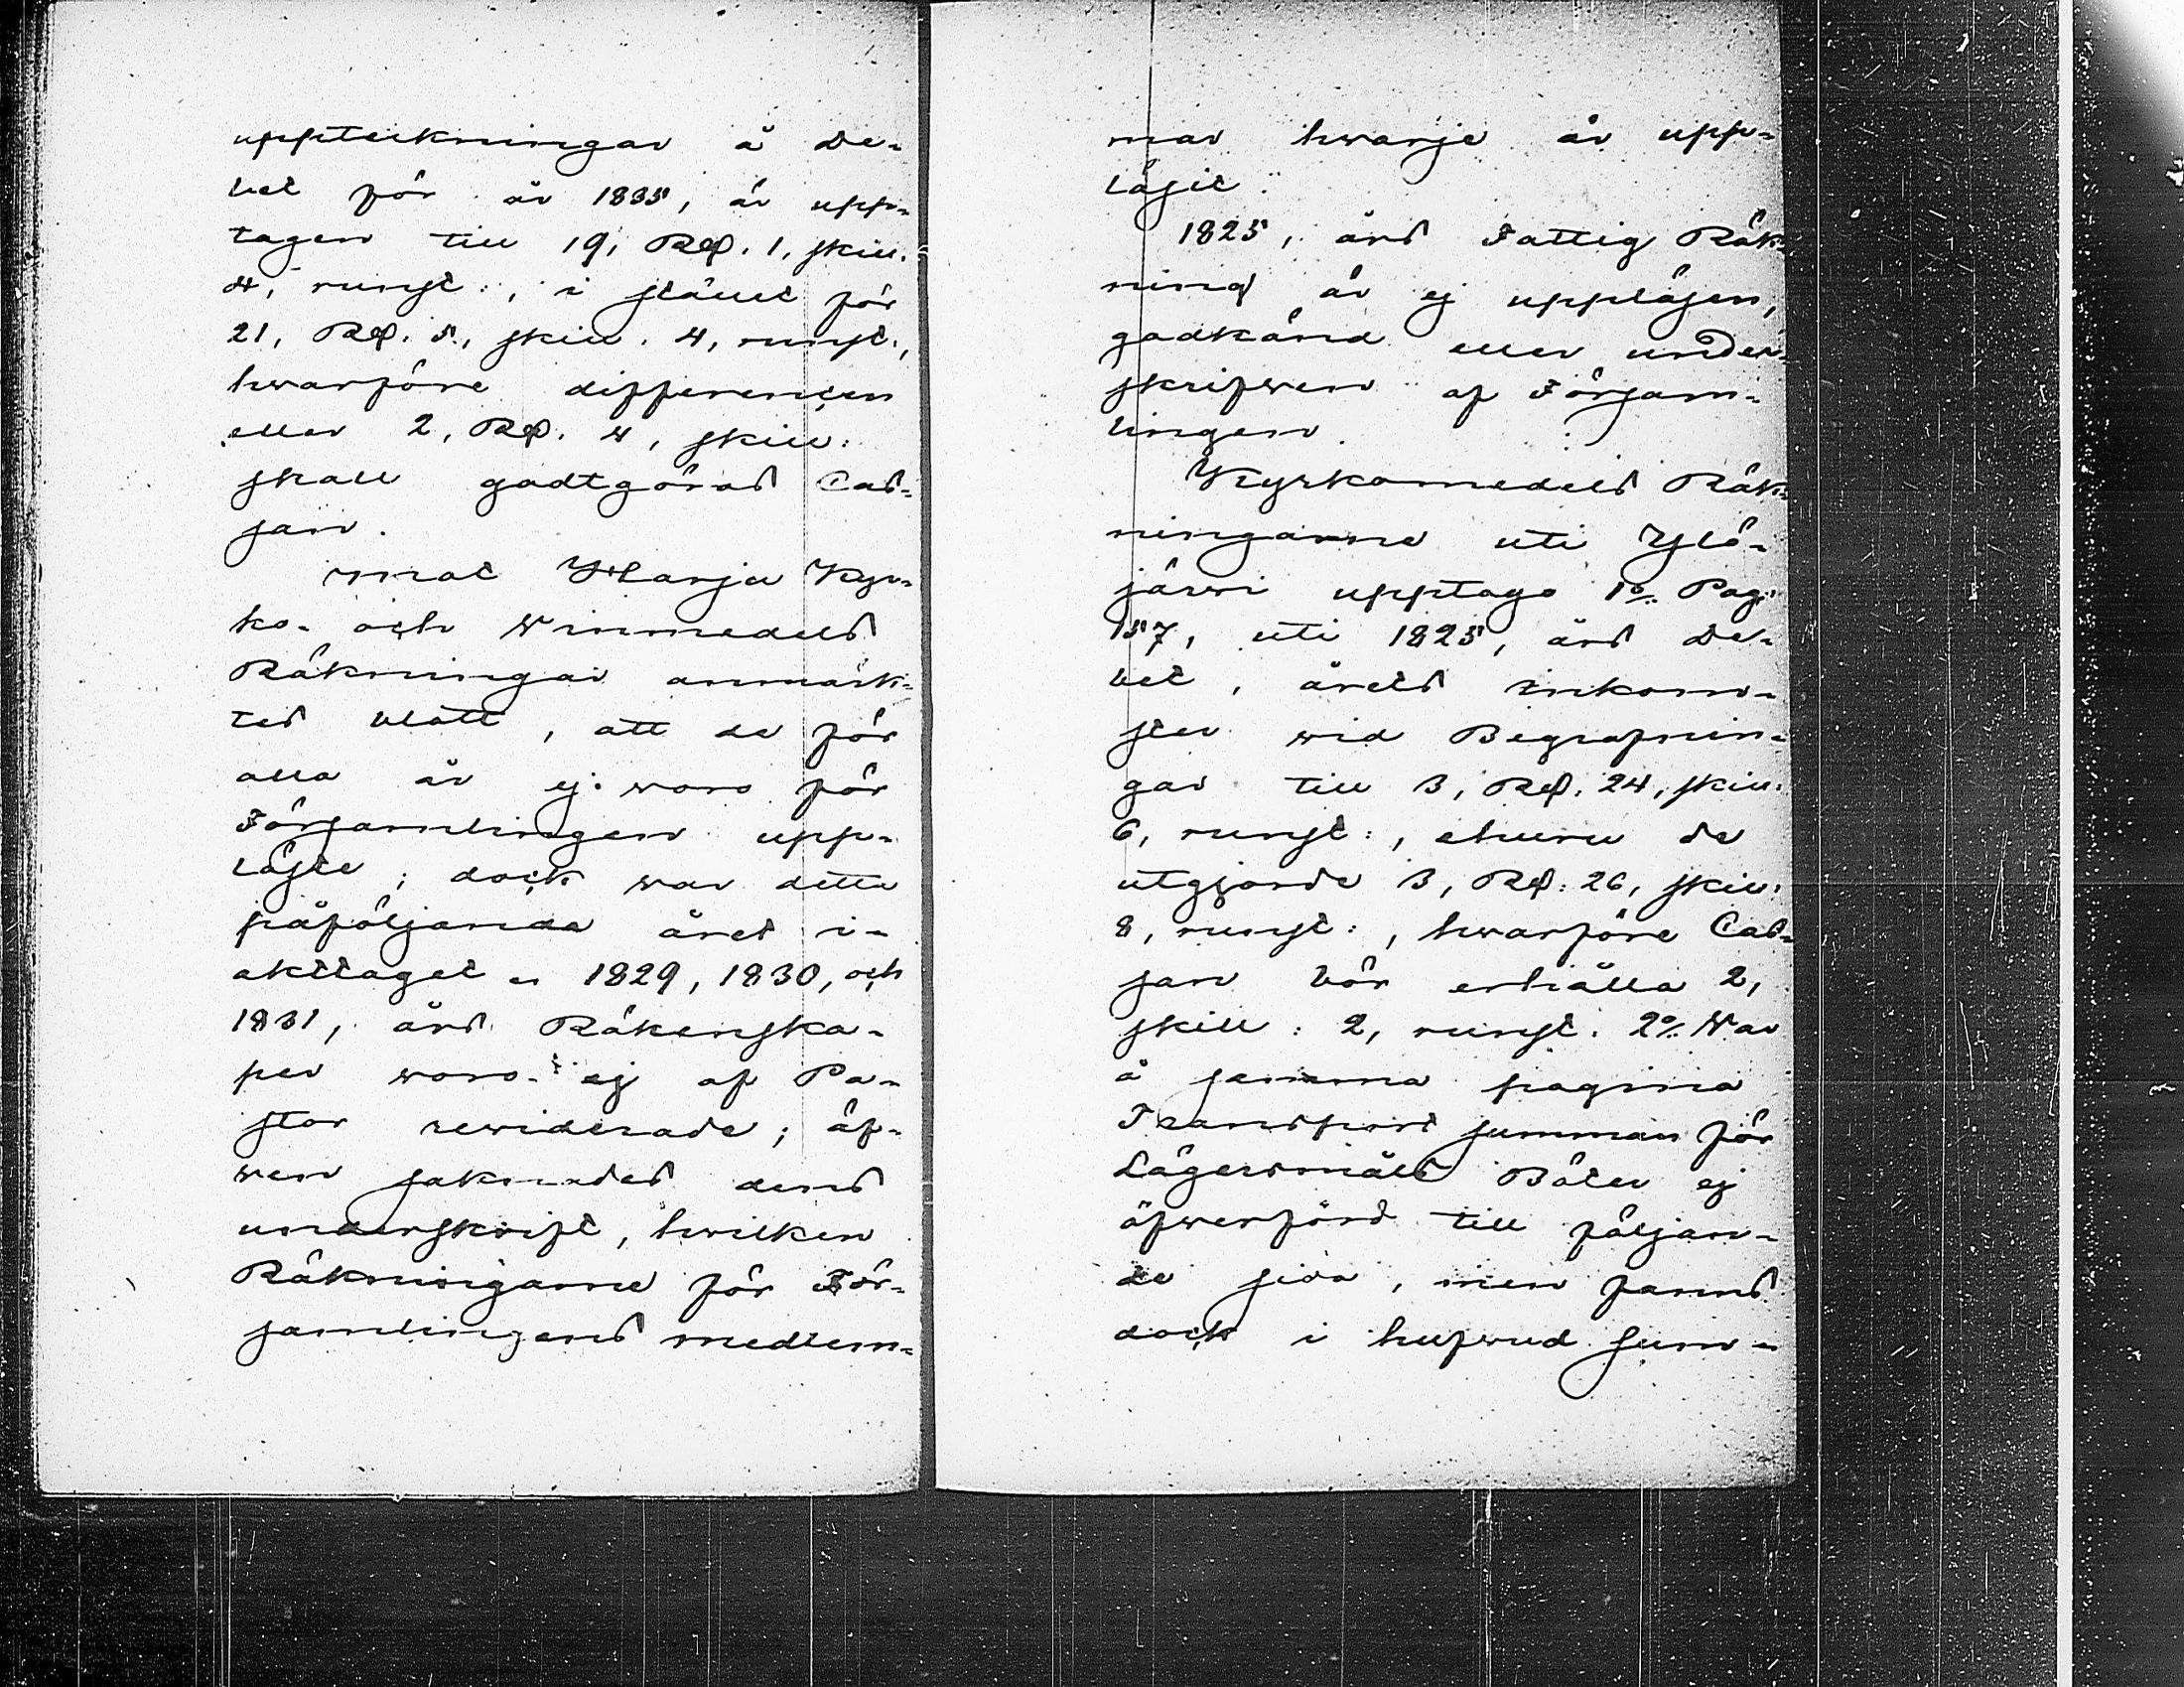 uppteckningar å De-
bet för år 1835, är upp-
tagen till 19, Rdl. 1, skill.
4, runst:, i stället för
21, Rdl. 5, skill. 4, runst.,
hwarföre differencen
eller 2, Rdl. 4, skill:
skall godtgöras Cas-
san.
mot Harju Kyr-
ko- och Winmedels
Räkningar anmärk-
tes blott, att de för
alla år ej woro för
Församlingen upp-
läste; dock war detta
påföljande året i-
akttaget. 1829, 1830, och
1831, års Räkenska-
per woro ej af Pa-
stor reviderade; äf-
wen saknades dens
underskrift, hwilken
Räkningarne för För-
samlingens medlem-
mar hwarje år upp-
läsit.
1825, års Fattig Räk-
ning är ej uppläsen,
godkänd eller under-
skrifwen af Försam-
lingen.
Kyrkomedels Räk-
ningarne uti Ylö-
järwi upptogo 1o Pag:
157, uti 1825, års De-
bet, årets inkom-
ster wid Begrafnin-
gar till 3, Rdl. 24, skill.
6, runst:, ehuru de
utgjorde 3, Rdl: 26, skill:
8, runst:, hwarföre Cas-
san bör erhålla 2,
skill: 2, runst. 2o War
å samma pagina
Transport summan för
Lägersmåls Böter ej
öfwerförd till följan-
de sida, men fanns
dock i hufwud sum-